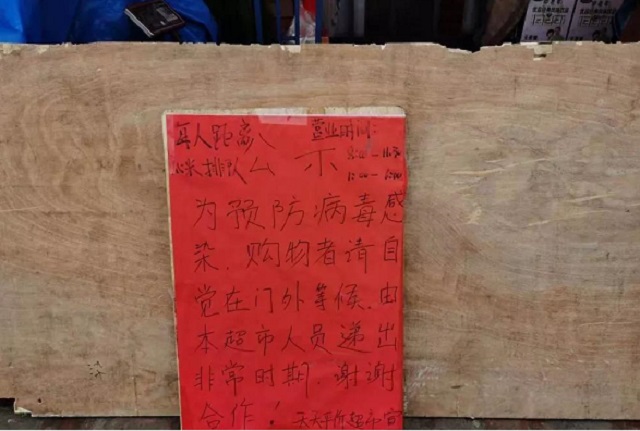 每人距离
营业时间:
米排队
公示
为预防病毒感
染.购物者请自
觉在门外等候.由
本超市人员递出
非常时期.谢谢
合作!